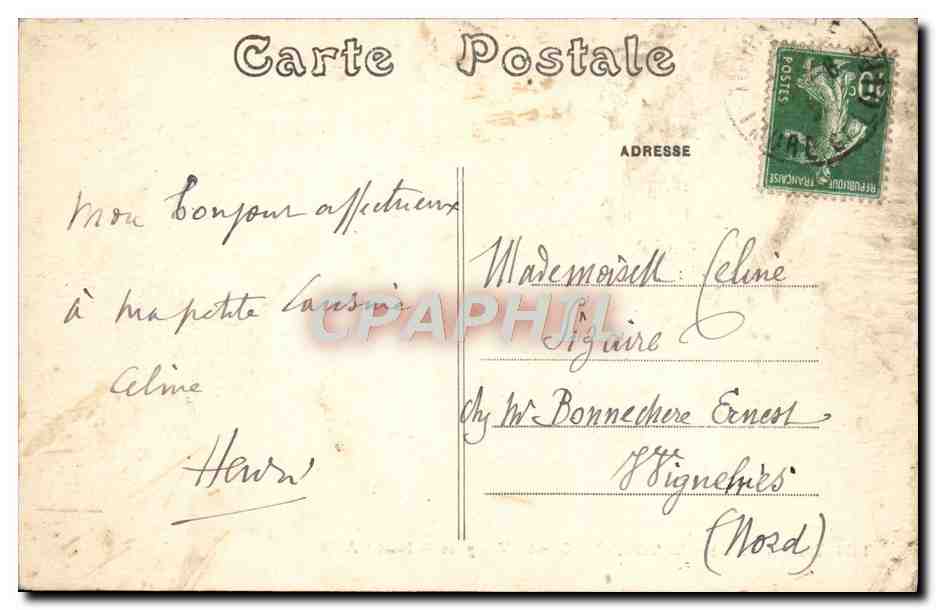 Carte Postale
ADRESSE
10c
POSTES
RÉPUBLIQUE
FRANÇAISE
Mon bonjour affectueux
à ma petite Cousine
Celine
Henri
Mademoiselle Celine
Sizaire
chez Mr Bonnechere Ernest
Wignehies
(Nord)
CPAPHIL